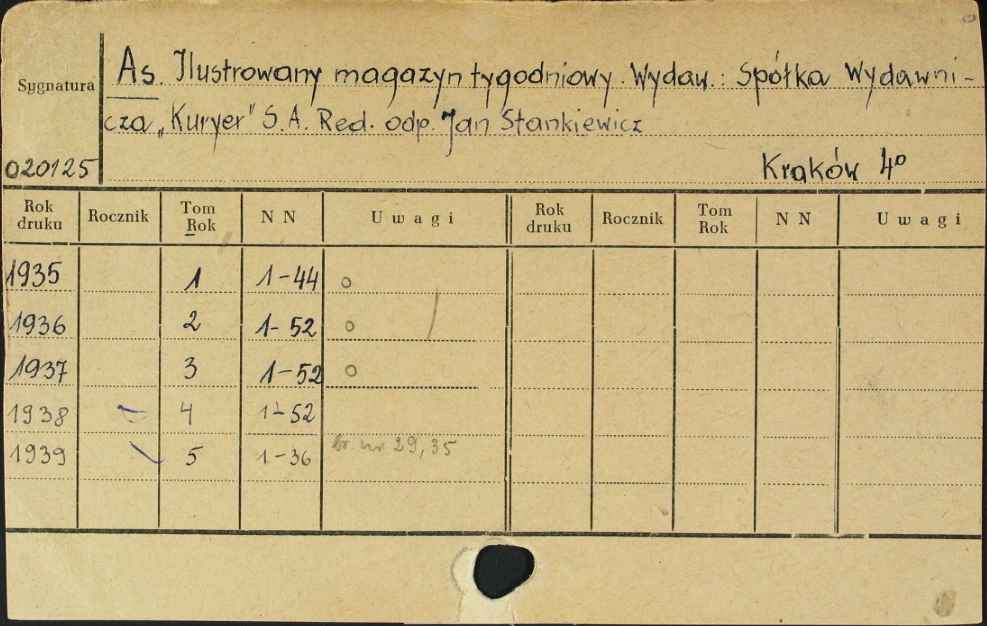 As. Ilustrowany magazyn tygodniowy. Wydaw.: Spółka Wydawni-
Sygnatura
cza „Kuryer" S.A. Red. odp. Jan Stankiewicz
020125 Kraków 4°
Rok druku Rocznik Tom Rok N N Uwagi Rok druku Rocznik Tom Rok N N Uwagi
1935 1 1-44 o
1936 2 1-52 o
1937 3 1-52 o
1938 4 1-52
1939 5 1-36 br. nr 29, 35